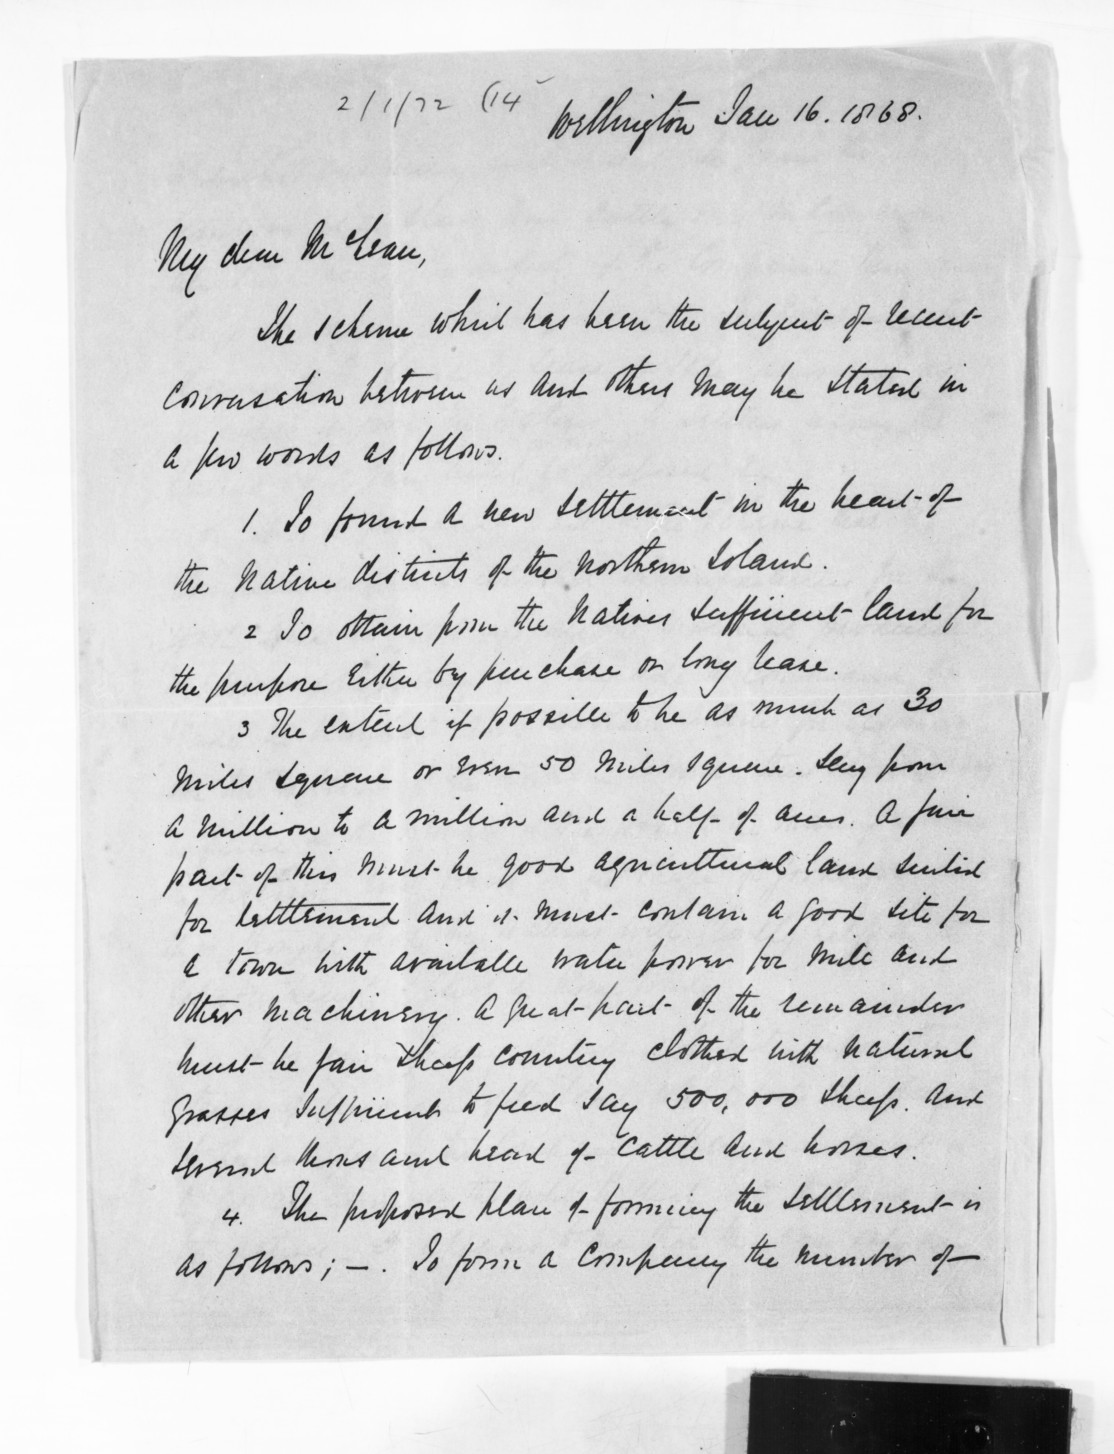 2/1/72 (14
Wellington Jan 16. 1868.
My dear McLean,
The scheme which has been the subject of recent
conversation between us and others may be stated in
a few words as follows.
1. To found a new settlement in the heart of
the Native districts of the Northern Island.
2 To obtain from the Natives sufficient land for
the purpose either by purchase or long lease.
3 The extent if possible to be as much as 30
miles square or even 50 miles square. Say from
a million to a million and a half of acres. A fair
part of this must be good agricultural land suited
for settlement and it must contain a good site for
a town with available water power for mills and
other machinery. A great part of the remainder
must be fair sheep country clothed with natural
grasses sufficient to feed say 500,000 sheep. and
several thousand head of cattle and horses.
4. The proposed plan of forming the settlement is
as follows; —. To form a Company the number of